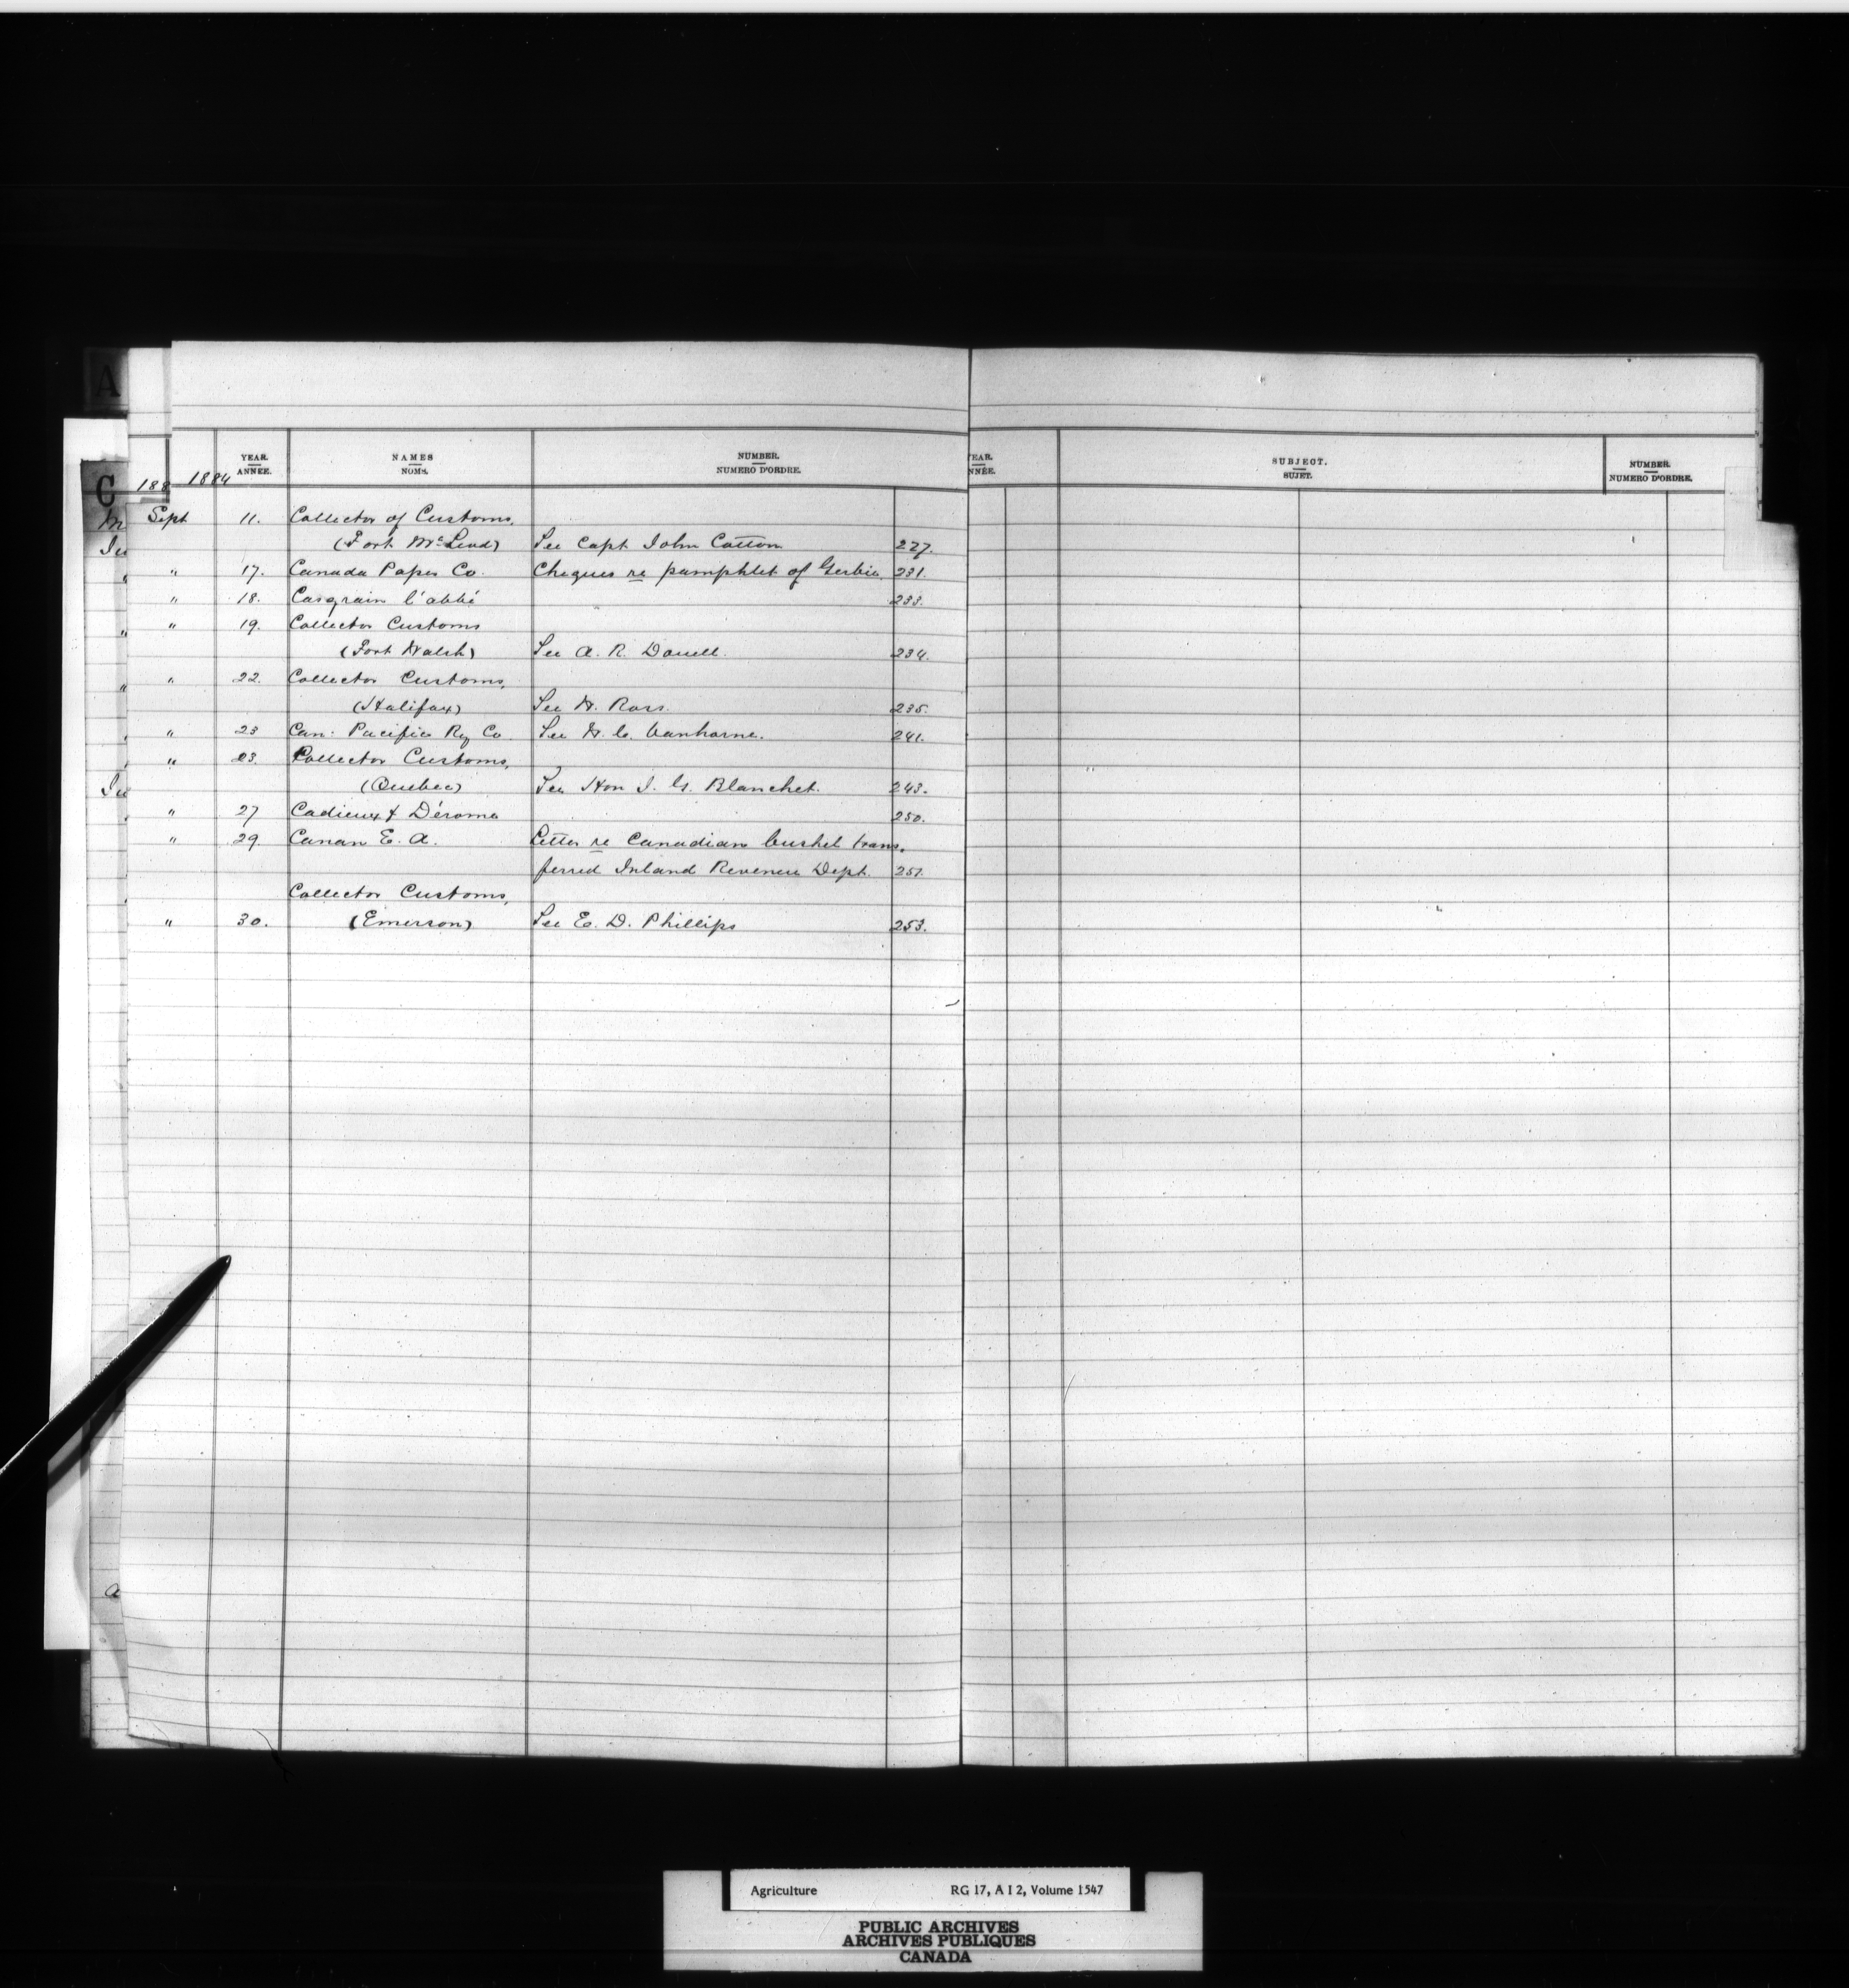 A
C
188
1884
YEAR. ANNÉE. NAMES NOMS. NUMBER. NUMERO D'ORDRE. YEAR. ANNÉE. SUBJECT. SUJET. NUMBER. NUMERO D'ORDRE.
Sept 11. Collector of Customs,
(Fort McLeod) See Capt John Cotton 227.
" 17. Canada Paper Co. Cheques re pamphlet of Gerbié 231.
" 18. Casgrain l'abbé 233.
" 19. Collector Customs
(Fort Walsh) See A. R. 234.
" 22. Collector Customs,
(Halifax) See W. Ross. 235.
" 23 Can: Pacific Ry Co. See W. C. Vanhorne. 241.
" 23. Collector Customs,
(Quebec) See Hon J. G. Blanchet. 243.
" 27 Cadieux & Dérome 250.
" 29. Canan E. A. Letter re Canadian bushel trans-
ferred Inland Revenue Dept. 251.
Collector Customs,
" 30. (Emerson) See E. D. Phillips 253.
Agriculture RG 17, A I 2, Volume 1547
PUBLIC ARCHIVES
ARCHIVES PUBLIQUES
CANADA